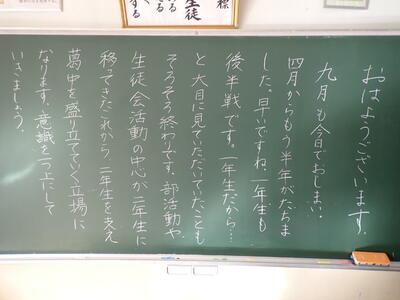 標
る
める
する
生徒
おはようございます。
九月も今日でおしまい。
四月からもう半年がたちま
した。早いですね、一年生も
後半戦です。一年生だから…
と大目に見ていただいていたことも
そろそろ終わりです。部活動や
生徒会活動の中心が二年生に
移ってきたこれから、二年生を支え
葛中を盛り立てていく立場に
なります。意識を一つ上にして
いきましょう。